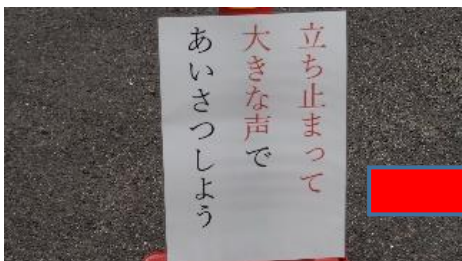 立ち止まって
大きな声で
あいさつしよう